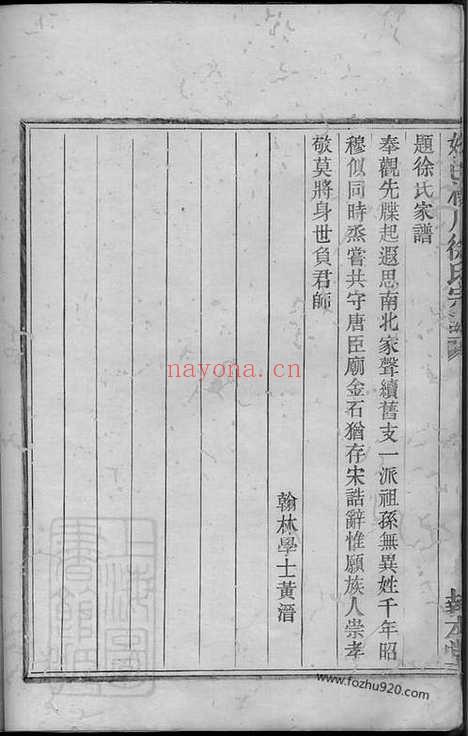 題徐氏家譜
奉觀先牒起遐思南北家聲續舊支一派祖孫無異姓千年昭
穆似同時烝嘗共守唐臣廟金石猶存宋誥辭惟願族人崇孝
敬莫將身世負君師
翰林學士黃溍
nayona.cn
上海圖書館藏
www.fozhu920.com